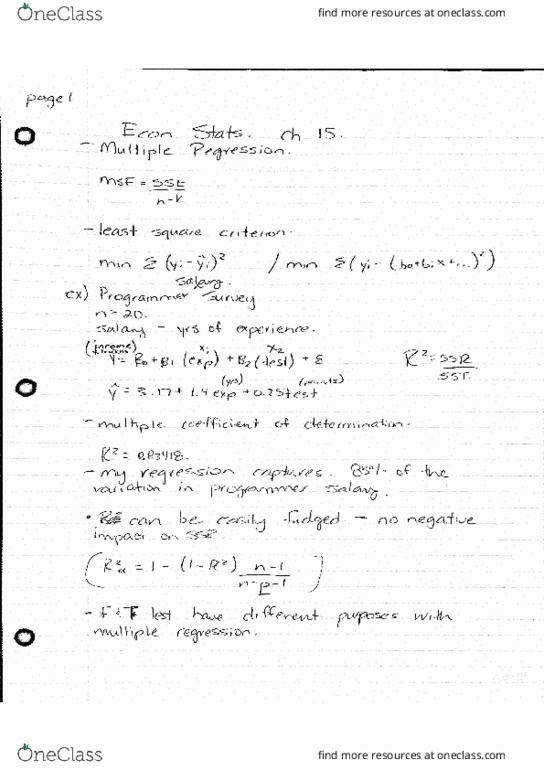 OneClass
find more resources at oneclass.com
page 1
Econ Stats. ch 15.
- Multiple Regression.
MSE = SSE
n-k
- least square criterion.
min Σ (yi - ŷi)² / min Σ (yi - (b0+b1x+...)²)
salary.
ex) Programmer Survey
n = 20.
salary - yrs of experience.
(income) x1 x2
Y = B0 + B1 (exp) + B2 (test) + ε R² = SSR
SST
(yrs) (points)
ŷ = 3.17 + 1.4 exp + 0.25 test
- multiple coefficient of determination.
R² = 0.83418.
- my regression captures 83% of the
variation in programmer salary.
• can be easily fudged - no negative
impact on SSR
(R²a = 1 - (1-R²) n-1 )
n-p-1
- F & T test have different purposes with
multiple regression.
OneClass
find more resources at oneclass.com